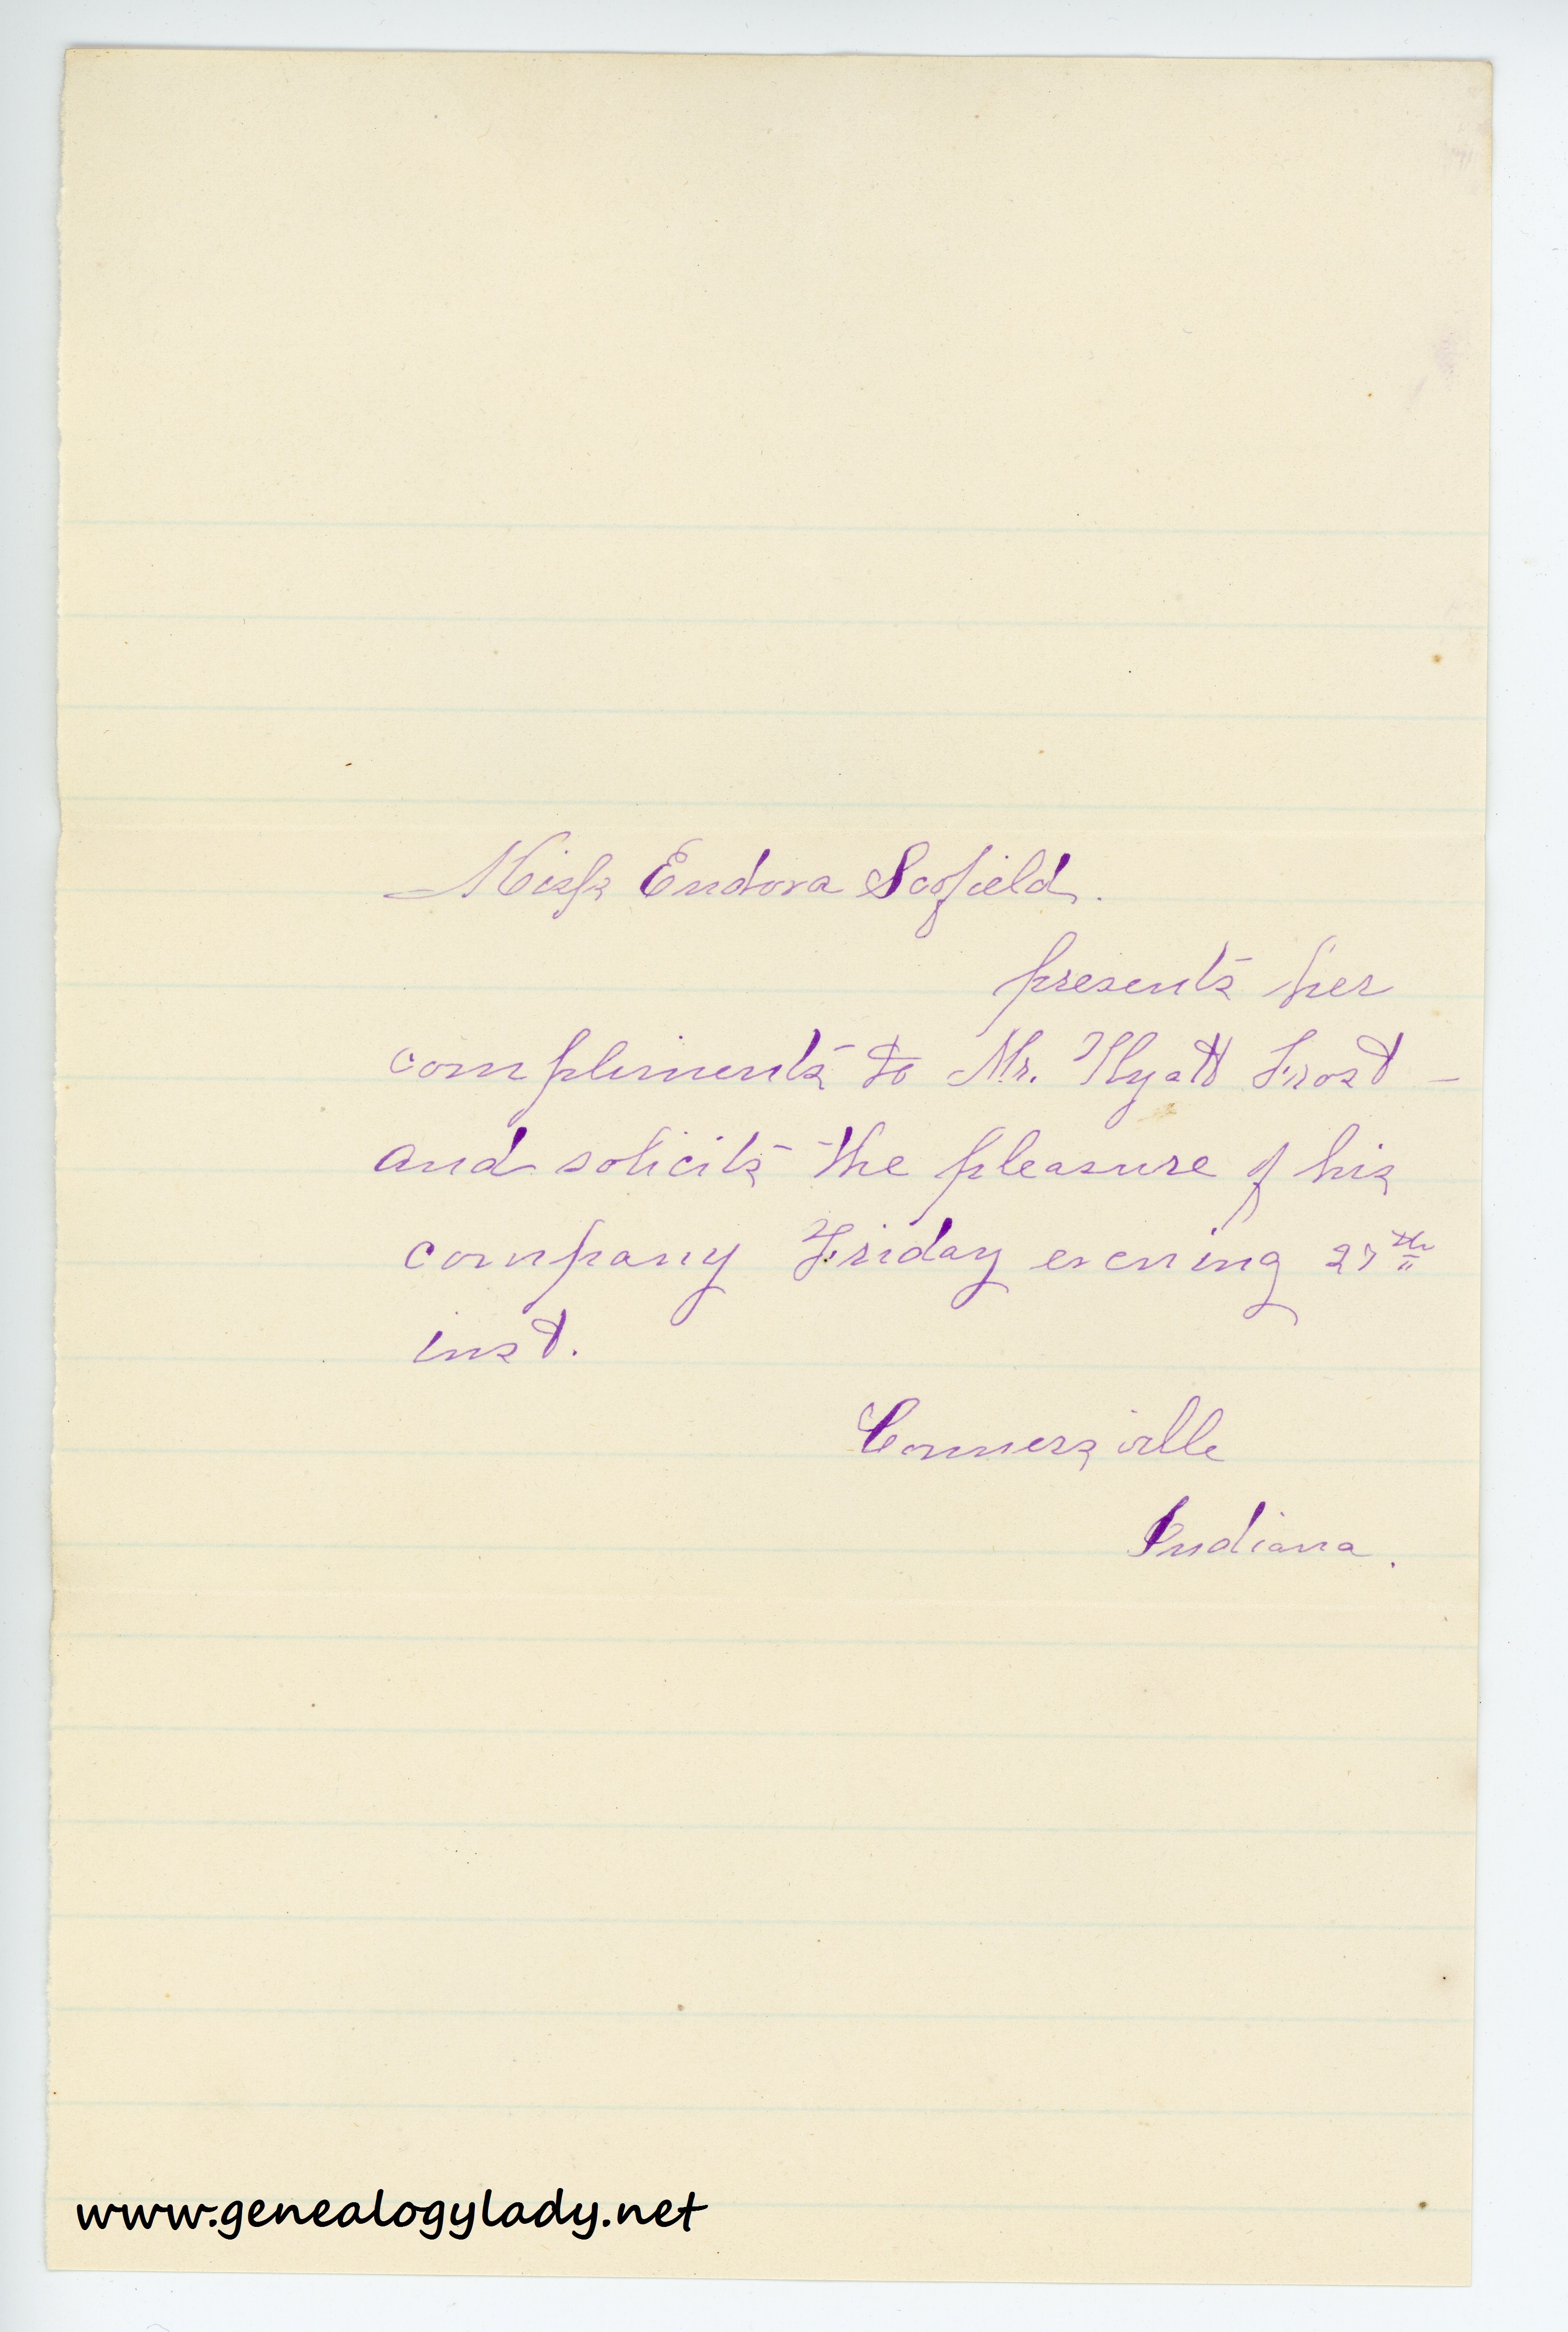 Miss Eudora Scofield.
presents her
compliments to Mr. Hyatt Frost –
and solicits the pleasure of his
company Friday evening 27th
inst.
Connersville
Indiana.
www.genealogylady.net